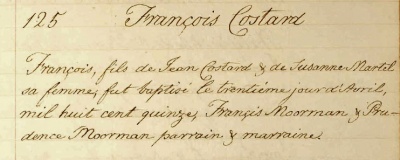 125 François Costard
François, fils de Jean Costard & de Susanne Martel
sa femme, fut baptisé le trentième jour d'Avril,
mil huit cent quinze, Françis Moorman & Pru-
dence Moorman parrain & marraine.